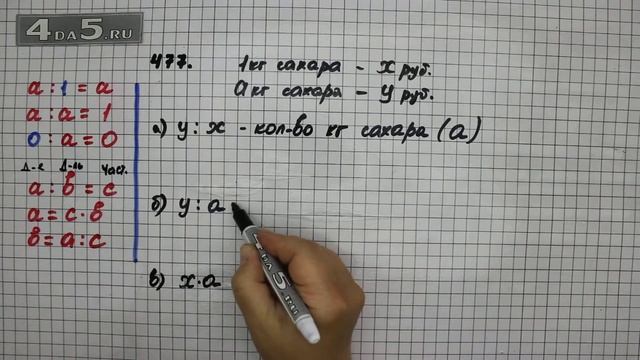 4DA5.RU
a : 1 = a
a : a = 1
0 : a = 0
Д-е Д-ль Част.
a : в = c
a = c · в
в = a : c
477. 1 кг сахара – x руб.
a кг сахара – y руб.
а) y : x - кол-во кг сахара (a)
б) y : a
в) x · a
4DA5.RU